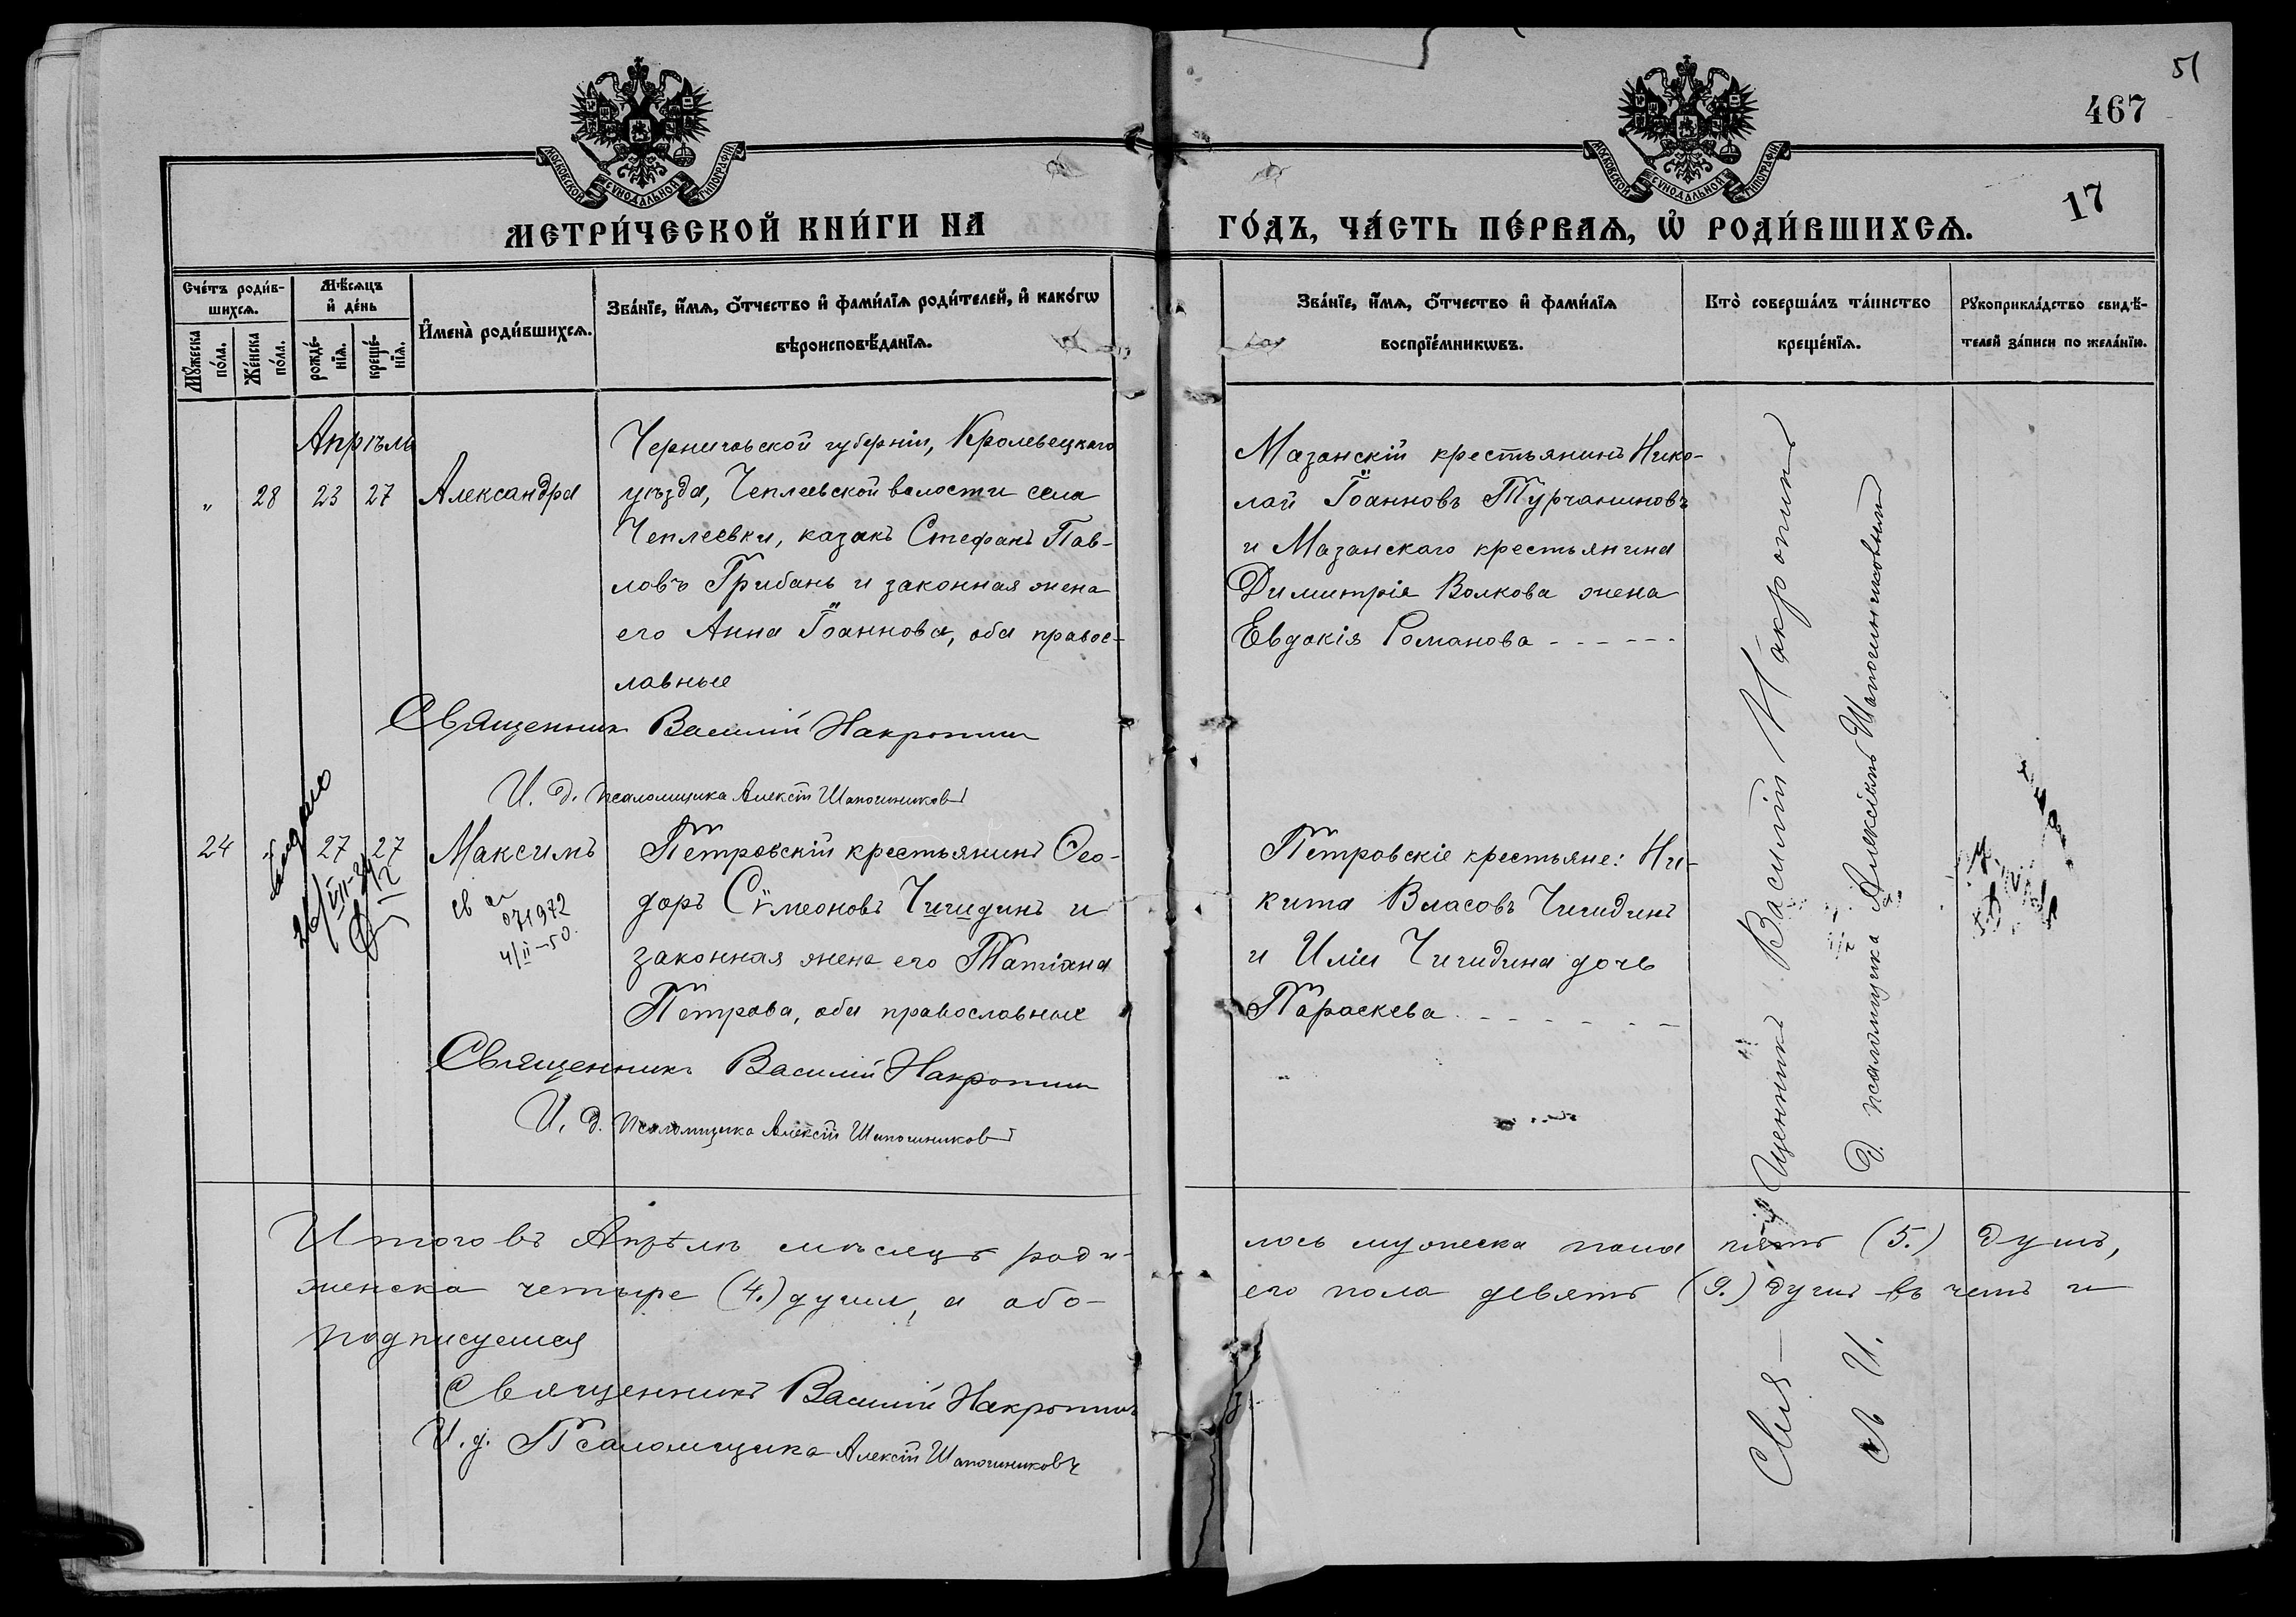 51
467
17
МОСКОВСКОЙ СѴНОДАЛЬНОЙ ТИПОГРАФІИ
МОСКОВСКОЙ СѴНОДАЛЬНОЙ ТИПОГРАФІИ
МЕТРИ́ЧЕСКОЙ КНИ́ГИ НА
ГО́ДЪ, ЧА́СТЬ ПЕ́РВАѦ, Ѡ҆ РОДИ́ВШИХСѦ.
Сче́тъ роди́в-
шихсѧ.
Мꙋ́жеска по́ла.
Же́нска по́ла.
Мѣ́сѧцъ
и҆ де́нь
рожде́-
нїѧ.
креще́-
нїѧ.
И҆мена̀ роди́вшихсѧ.
Зва́нїе, и҆́мѧ, ѻ҆́тчество и҆ фами́лїѧ роди́телей, и҆ како́гѡ
вѣроисповѣ́данїѧ.
Зва́нїе, и҆́мѧ, ѻ҆́тчество и҆ фами́лїѧ
воспрїе́мникѡвъ.
Кто̀ соверша́лъ та́инство
креще́нїѧ.
Рꙋкоприкла́дство свидѣ́-
телей за́писи по жела́нїю.
Апрѣль
" 28 23 27 Александра
Черниговской губерніи, Кролевецкаго
уѣзда, Чеплеевской волости села
Чеплеевки, казакъ Стефанъ Пав-
ловъ Грибань и законная жена
его Анна Іоаннова, оба правос-
лавные
Мазанскій крестьянинъ Нико-
лай Іоанновъ Турчаниновъ
и Мазанскаго крестьянина
Димитрія Волкова жена
Евдокія Романова
Священникъ Василій Накропин
И. д. псаломщика Алексій Шапошниковъ
24 " 27 27 Максимъ
Петровскій крестьянинъ Ѳео-
доръ Сѵмеоновъ Чигидинъ и
законная жена его Татіана
Петрова, оба православные
выдано
26/VII-
св
071972
4/II-50.
Петровскіе крестьяне: Ни-
кита Власовъ Чигидинъ
и Иліи Чигидина дочь
Параскева
Священникъ Василій Накропин
И. д. Псаломщика Алексій Шапошниковъ
Священникъ Василій Накропинъ
И. д. псаломщика Алексіямъ Шапошниковымъ
Итого въ Апрѣлѣ мѣсяцѣ роди-
лось мужеска пола пять (5.) душъ,
женска четыре (4.) души, а обо-
его пола девять (9.) душъ въ чемъ и
подписуемся
Священникъ Василій Накропинъ
И. д. Псаломщика Алексій Шапошниковъ